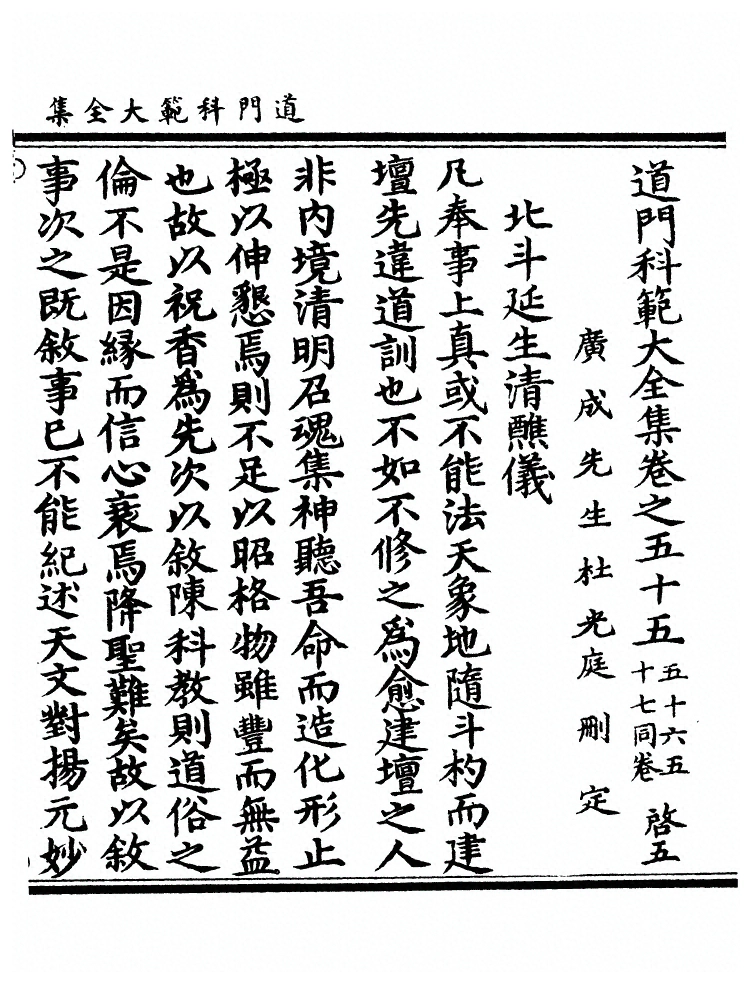 道門科範大全集
道門科範大全集卷之五十五五十六五十七同卷 啓五
廣成先生杜光庭刪定
北斗延生清醮儀
凡奉事上真或不能法天象地隨斗杓而建
壇先違道訓也不如不修之為愈建壇之人
非內境清明召魂集神聽吾命而造化形止
極以伸懇焉則不足以昭格物雖豐而無益
也故以祝香為先次以敘陳科教則道俗之
倫不是因緣而信心衰焉降聖難矣故以敘
事次之既敘事已不能紀述天文對揚元妙